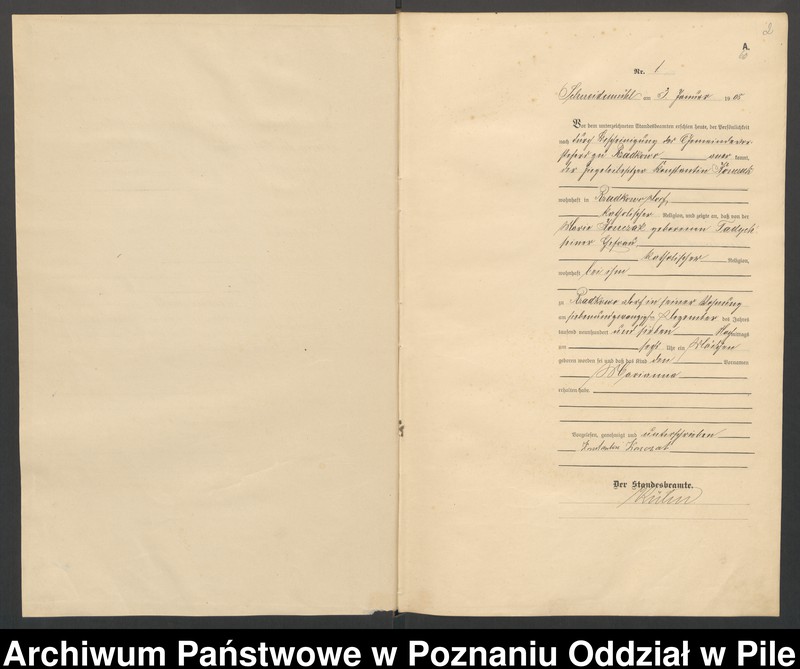 2
A.
Nr. 1
Schneidemühl am 3. Januar 1905.
Vor dem unterzeichneten Standesbeamten erschien heute, der Persönlichkeit
nach durch Bescheinigung der Gemeindevor-
zu Radkowo kannt,
der Konstantin
wohnhaft in Radkowo Dorf,
katholischer Religion, und zeigte an, daß von der
Maria Konczak geborenen
seiner Ehefrau
katholischer Religion,
wohnhaft bei ihm
zu Radkowo Dorf in seiner Wohnung
am siebenundzwanzigsten Dezember des Jahres
tausend neunhundert und Nachmittags
um Uhr ein Mädchen
geboren worden sei und daß das Kind den Vornamen
Marianna
erhalten habe.
Vorgelesen, genehmigt und unterschrieben
Konstantin Konczak
Der Standesbeamte.
Archiwum Państwowe w Poznaniu Oddział w Pile